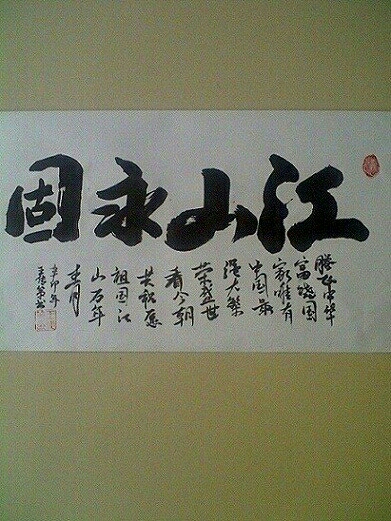 江山永固
腾飞中华
富饶国
家唯有
中国最
强大繁
荣盛世
看今朝
共祝愿
祖国江
山万年
青
辛卯年